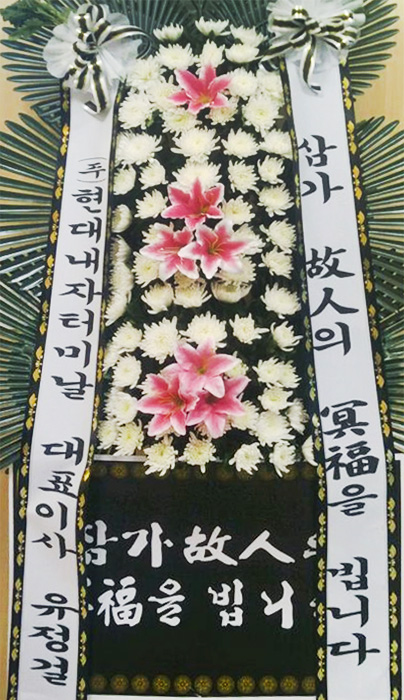 삼가 故人의 冥福을 빕니다
(주)현대내자터미날 대표이사 유정걸
삼가故人의
冥福을 빕니